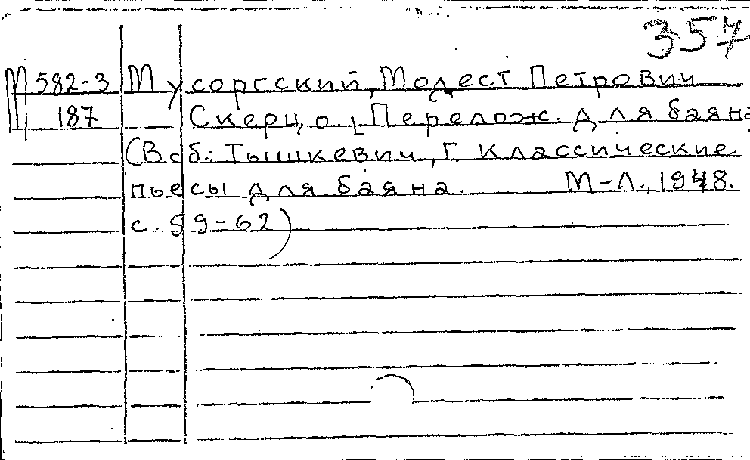 357
М 582-3 Мусоргский, Модест Петрович
187 Скерцо. Перелож. для баяна
(В сб: Тышкевич, Г. Классические
пьесы для баяна. М-Л., 1948.
с. 59-62)